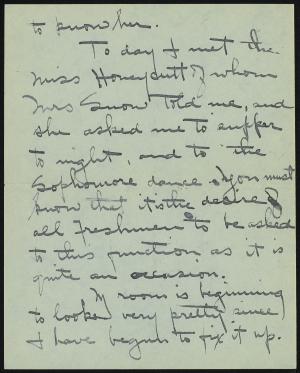 to know her.
To day I met the
Miss Honeycutt of whom
Mrs Snow told me, and
she asked me to supper
to night, and to the
Sophomore dance. You must
know that it is the desire of
all Freshmen to be asked
to this function as it is
quite an occasion.
My room is beginning
to look very pretty since
I have begun to fix it up.